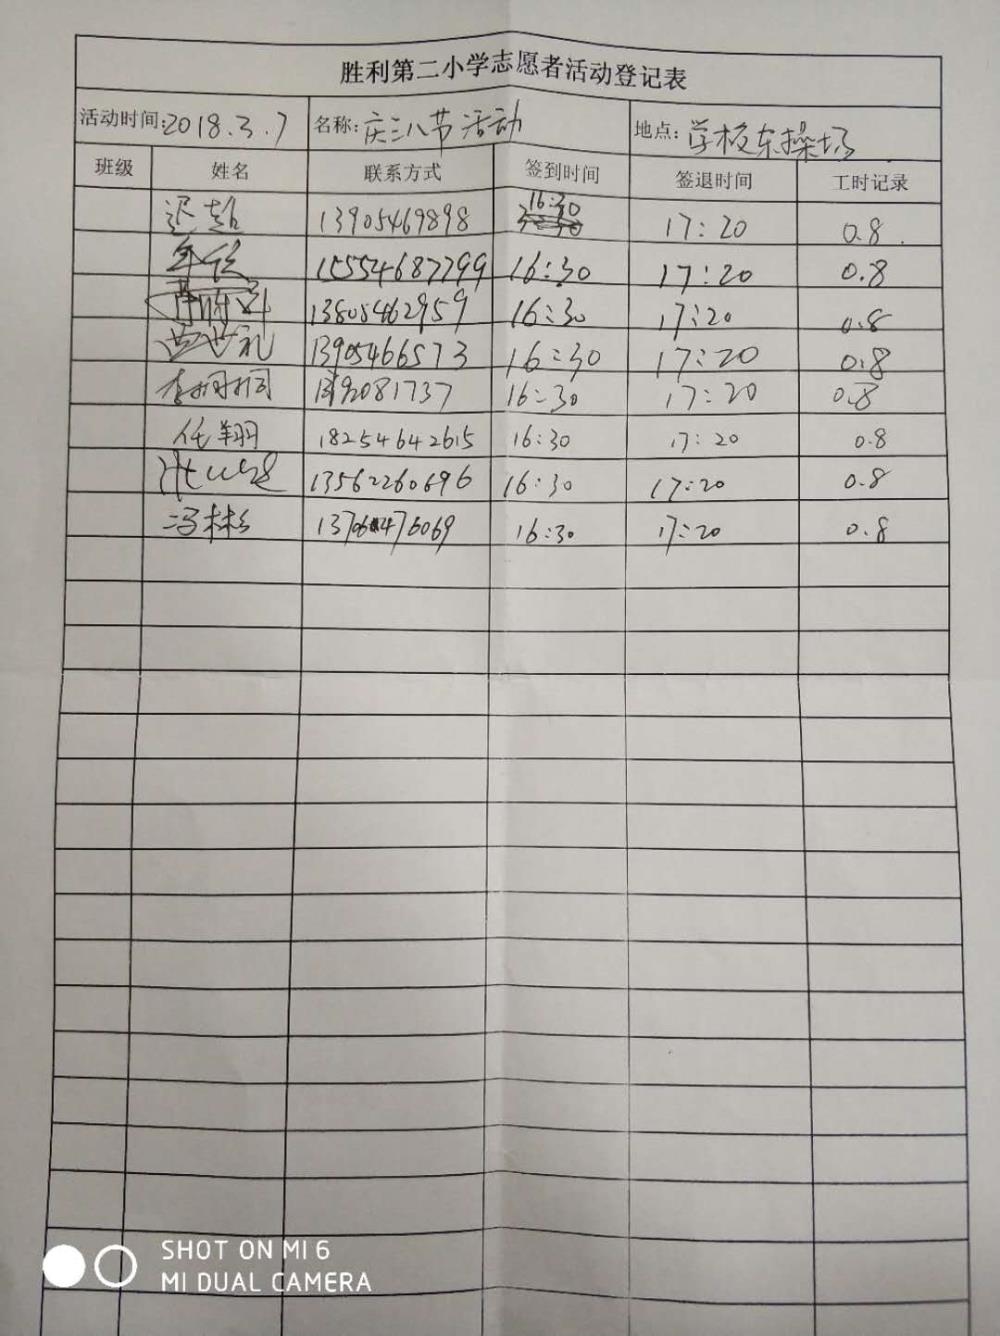 胜利第二小学志愿者活动登记表
活动时间:2018.3.7 名称:庆三八节活动 地点:学校东操场
班级 姓名 联系方式 签到时间 签退时间 工时记录
迟超 13905469898 16:30 17:20 0.8
15554687799 16:30 17:20 0.8
13805462959 16:30 17:20 0.8
13905466573 16:30 17:20 0.8
李栩栩 16:30 17:20 0.8
任翔 18254642615 16:30 17:20 0.8
13562260696 16:30 17:20 0.8
冯彬彬 16:30 17:20 0.8
SHOT ON MI 6
MI DUAL CAMERA